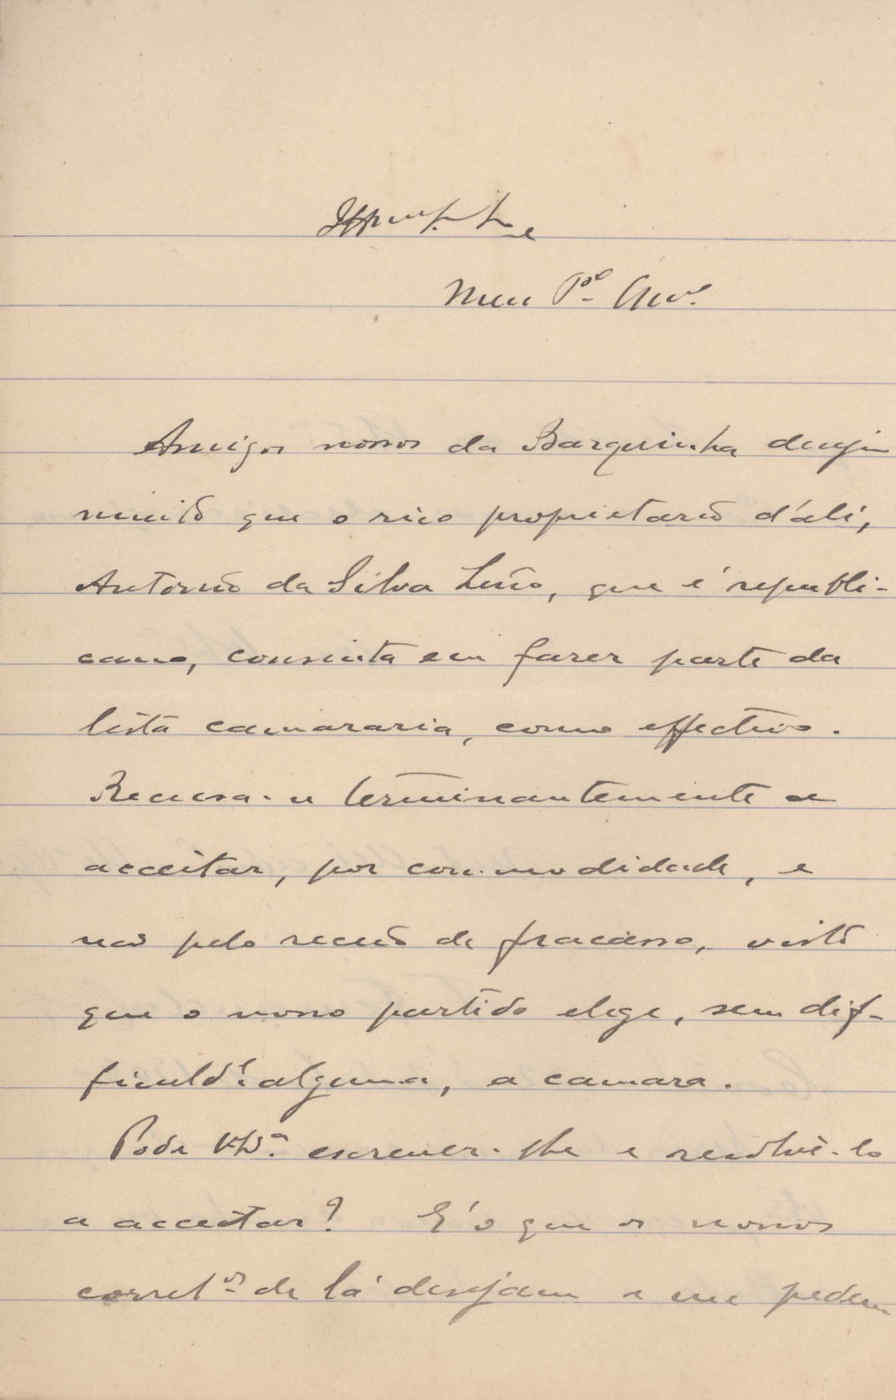 Meu P.º Am.º
Amigos nossos da Barquinha desejam
muito que o rico proprietario d'ali,
Antonio da Silva, que é republi-
cano, consinta em fazer parte da
lista camararia, como effectivo.
Recusa-se terminantemente a
acceitar, por commodidade, e
não pelo receio de fracasso, visto
que o nosso partido elege, sem dif-
ficuld.e alguma, a camara.
Pode V. escrever-lhe e resolvê-lo
a acceitar? É o que os nossos
correl.os de lá desejam e me pedem